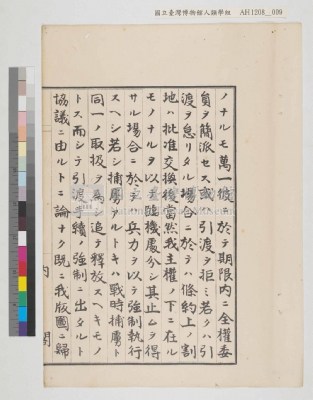 國立臺灣博物館人類學組 AH1208_009
ノナルモ萬一彼ニ於テ期限内ニ全權委
員ヲ簡派セス或ハ引渡ヲ拒ミ若クハ引
渡ヲ怠リタル場合ニ於テハ條約上ノ割
地ハ批准交換後當然我主權ノ下ニ在ル
モノナルヲ以テ臨機處分シ其止ムヲ得
サル場合ニ於テハ兵力ヲ以テ強制執行
スヘシ若シ捕虜アルトキハ戰時捕虜ト
同一ノ取扱ヲ爲シ追テ釋放スヘキモノ
トス而シテ引渡手續ノ強制ニ出タルト
協議ニ由ルトニ論ナク既ニ我版圖ニ歸
内閣